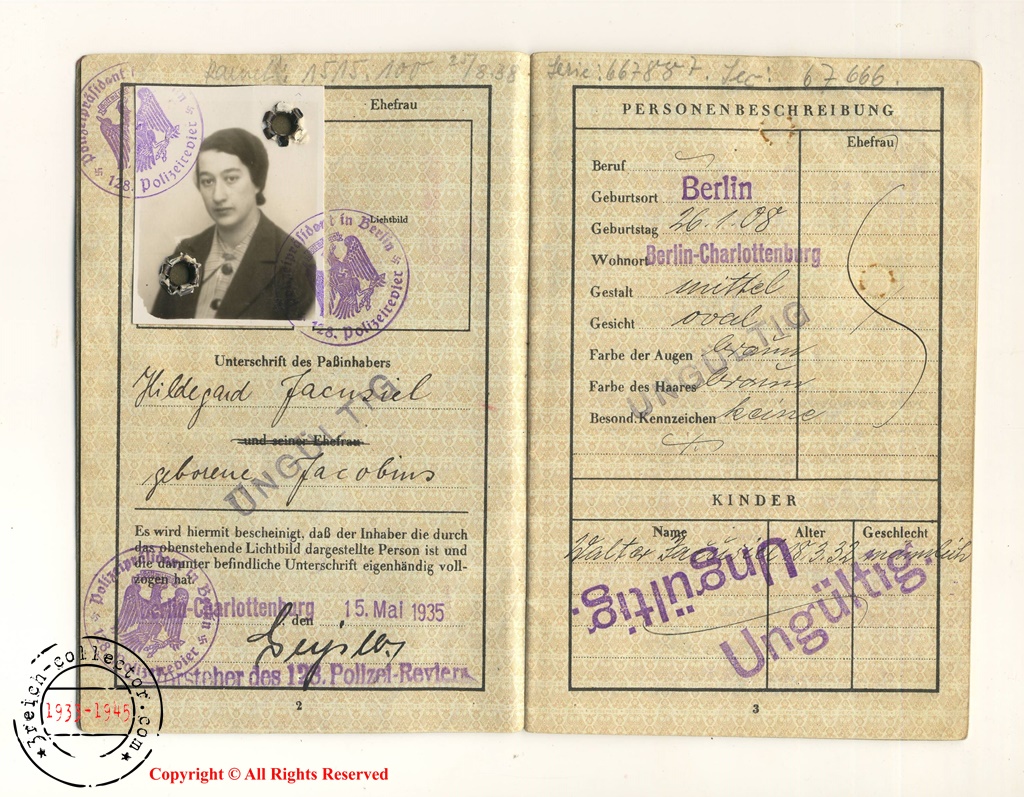 1515. 100 25/8.38
Ehefrau
Lichtbild
Polizeipräsident in Berlin
128. Polizeirevier
Polizeipräsident in Berlin
128. Polizeirevier
Unterschrift des Paßinhabers
Hildegard Jacusiel
und seiner Ehefrau
geborene Jacobius
UNGÜLTIG
Es wird hiermit bescheinigt, daß der Inhaber die durch
das obenstehende Lichtbild dargestellte Person ist und
die darunter befindliche Unterschrift eigenhändig voll-
zogen hat.
Polizeipräsident in Berlin
Polizeirevier
Berlin-Charlottenburg 15. Mai 1935
den
Vorsteher des 128. Polizei-Reviers
2
Serie: 667887. Sec: 67666.
PERSONENBESCHREIBUNG
Ehefrau
Beruf
Geburtsort Berlin
Geburtstag 26.1.08
Wohnort Berlin-Charlottenburg
Gestalt mittel
Gesicht oval
Farbe der Augen braun
Farbe des Haares braun
Besond. Kennzeichen keine
UNGÜLTIG
KINDER
Name Alter Geschlecht
Walter Jacusiel 18.3.32 männlich
Ungültig.
Ungültig.
3
3reich-collector.com
1933-1945
Copyright © All Rights Reserved